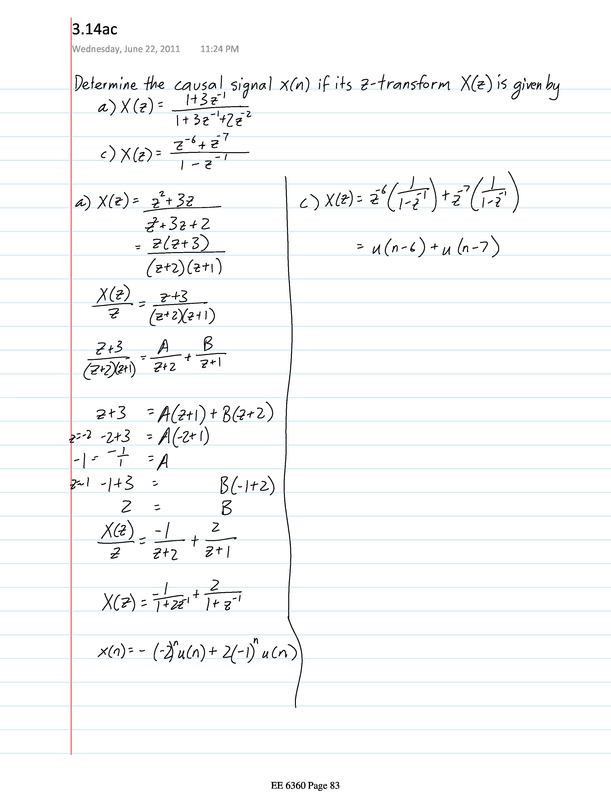 3.14ac
Wednesday, June 22, 2011 11:24 PM
Determine the causal signal x(n) if its z-transform X(z) is given by
a) X(z) = (1+3z⁻¹)/(1+3z⁻¹+2z⁻²)
c) X(z) = (z⁻⁶+z⁻⁷)/(1-z⁻¹)
a) X(z) = (z²+3z)/(z²+3z+2)
= z(z+3)/((z+2)(z+1))
X(z)/z = (z+3)/((z+2)(z+1))
(z+3)/((z+2)(z+1)) = A/(z+2) + B/(z+1)
z+3 = A(z+1) + B(z+2)
z=-2 -2+3 = A(-2+1)
-1 = -1/1 = A
z=-1 -1+3 = B(-1+2)
2 = B
X(z)/z = -1/(z+2) + 2/(z+1)
X(z) = -1/(1+2z⁻¹) + 2/(1+z⁻¹)
x(n) = -(-2)ⁿu(n) + 2(-1)ⁿu(n)
c) X(z) = z⁻⁶(1/(1-z⁻¹)) + z⁻⁷(1/(1-z⁻¹))
= u(n-6) + u(n-7)
EE 6360 Page 83